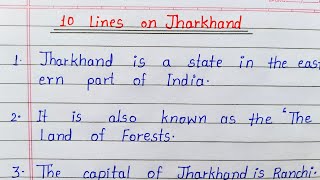 10 Lines on Jharkhand
1. Jharkhand is a state in the east
ern part of India.
2. It is also known as the 'The
Land of Forests.
3. The capital of Jharkhand is Ranchi.